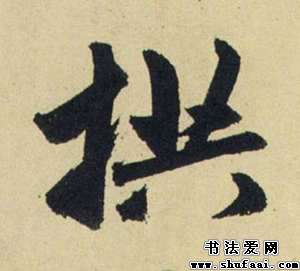 拱
书法爱网
www.shufaai.com